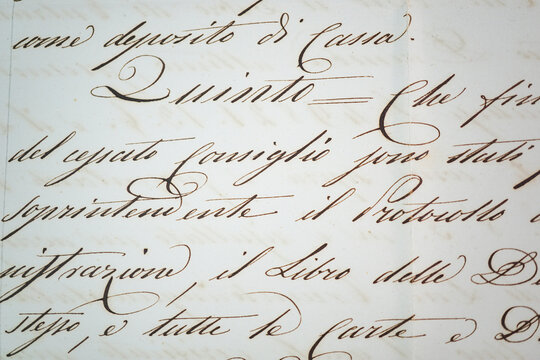 come deposito di Cassa.
Quinto = Che fin
del cessato Consiglio sono stati
soprintendente il Protocollo
nistrazione, il Libro delle De
stesso, e tutte le Carte e D